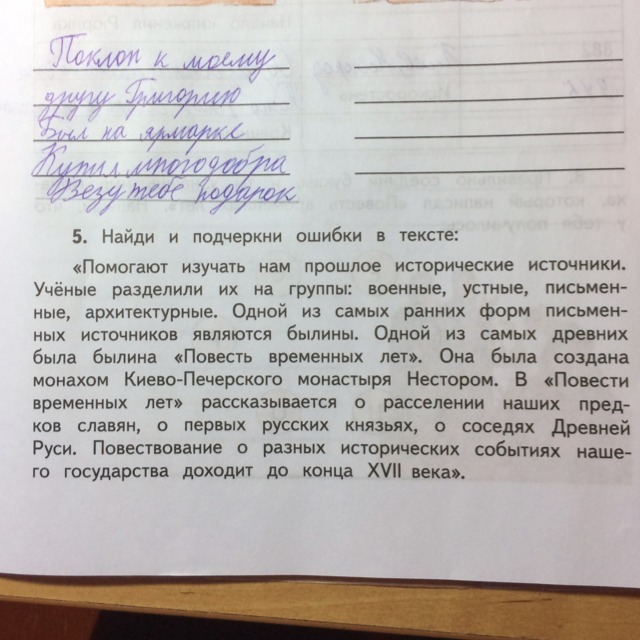 Поклон к моему
другу Григорию
Был на ярмарке
Купил много добра
Везу тебе подарок
5. Найди и подчеркни ошибки в тексте:
«Помогают изучать нам прошлое исторические источники.
Учёные разделили их на группы: военные, устные, письмен-
ные, архитектурные. Одной из самых ранних форм письмен-
ных источников являются былины. Одной из самых древних
была былина «Повесть временных лет». Она была создана
монахом Киево-Печерского монастыря Нестором. В «Повести
временных лет» рассказывается о расселении наших пред-
ков славян, о первых русских князьях, о соседях Древней
Руси. Повествование о разных исторических событиях наше-
го государства доходит до конца XVII века».